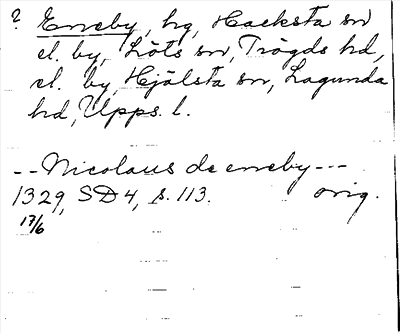 ? Enneby, hg, Hacksta sn
el. by, Löts sn, Trögds hd,
el. by, Hjälsta sn, Lagunda
hd, Upps. l.
--Nicolaus de enneby---
1329, SD 4, s. 113. orig.
17/6